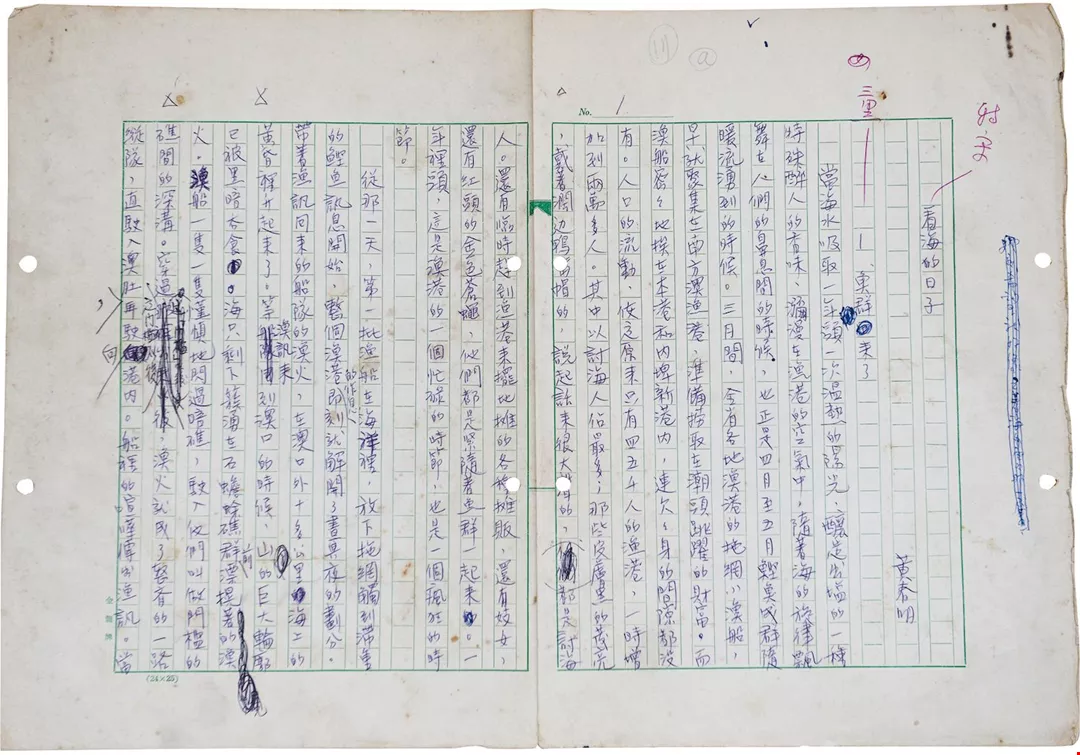 仿宋
看海的日子
黃春明
三黑
1、魚群來了
當海水吸取一年頭一次溫熱的陽光,釀造出鹽的一種
特殊醉人的香味,瀰漫在漁港的空氣中,隨著海的旋律飄
舞在人們的鼻息間的時候,也正是四月至五月鰹魚成群隨
暖流湧到的時候。三月間,全省各地漁港的拖網小漁船,
早就聚集在南方澳漁港,準備撈取在潮頭跳躍的財富。而
漁船密々地挨在本港和內埤新港內,連欠々身的間隙都沒
有。人口的流動,使這原來只有四五千人的漁港,一時增
加到兩萬多人。其中以討海人佔最多,那些皮膚黑的發亮
,戴著濶边鴨舌帽的,說起話來很大聲的,都是討海
No. 1
人。還有臨時趕到漁港來擺地攤的各種攤販,還有妓女,
還有紅頭的金色蒼蠅,他們都是緊隨著魚群一起來。一
年裡頭,這是漁港的一個忙碌的時節,也是一個瘋狂的時
節。
從那一天,第一批漁船在海洋裡,放下拖網觸到滯重
的鰹魚訊息開始,整個漁港的作息即刻就解開了晝與夜的劃分。
帶著漁訊回來的船隊的漁火,在澳口外十多公里海上的
黃昏裡升起來了。等漁訊來到澳口的時候,山的巨大輪廓
已被黑暗吞食。海只剩下繞湧在石蟾蜍礁群前漂搖著的漁
火。漁船一隻一隻謹慎地閃過暗礁,駛入他們叫做門檻的
礁間的深溝。穿過後,漁火就成了整齊的一路
縱隊,直駛入澳肚再駛向港內。船裡的喧嘩傳出漁訊。當
(24×25)